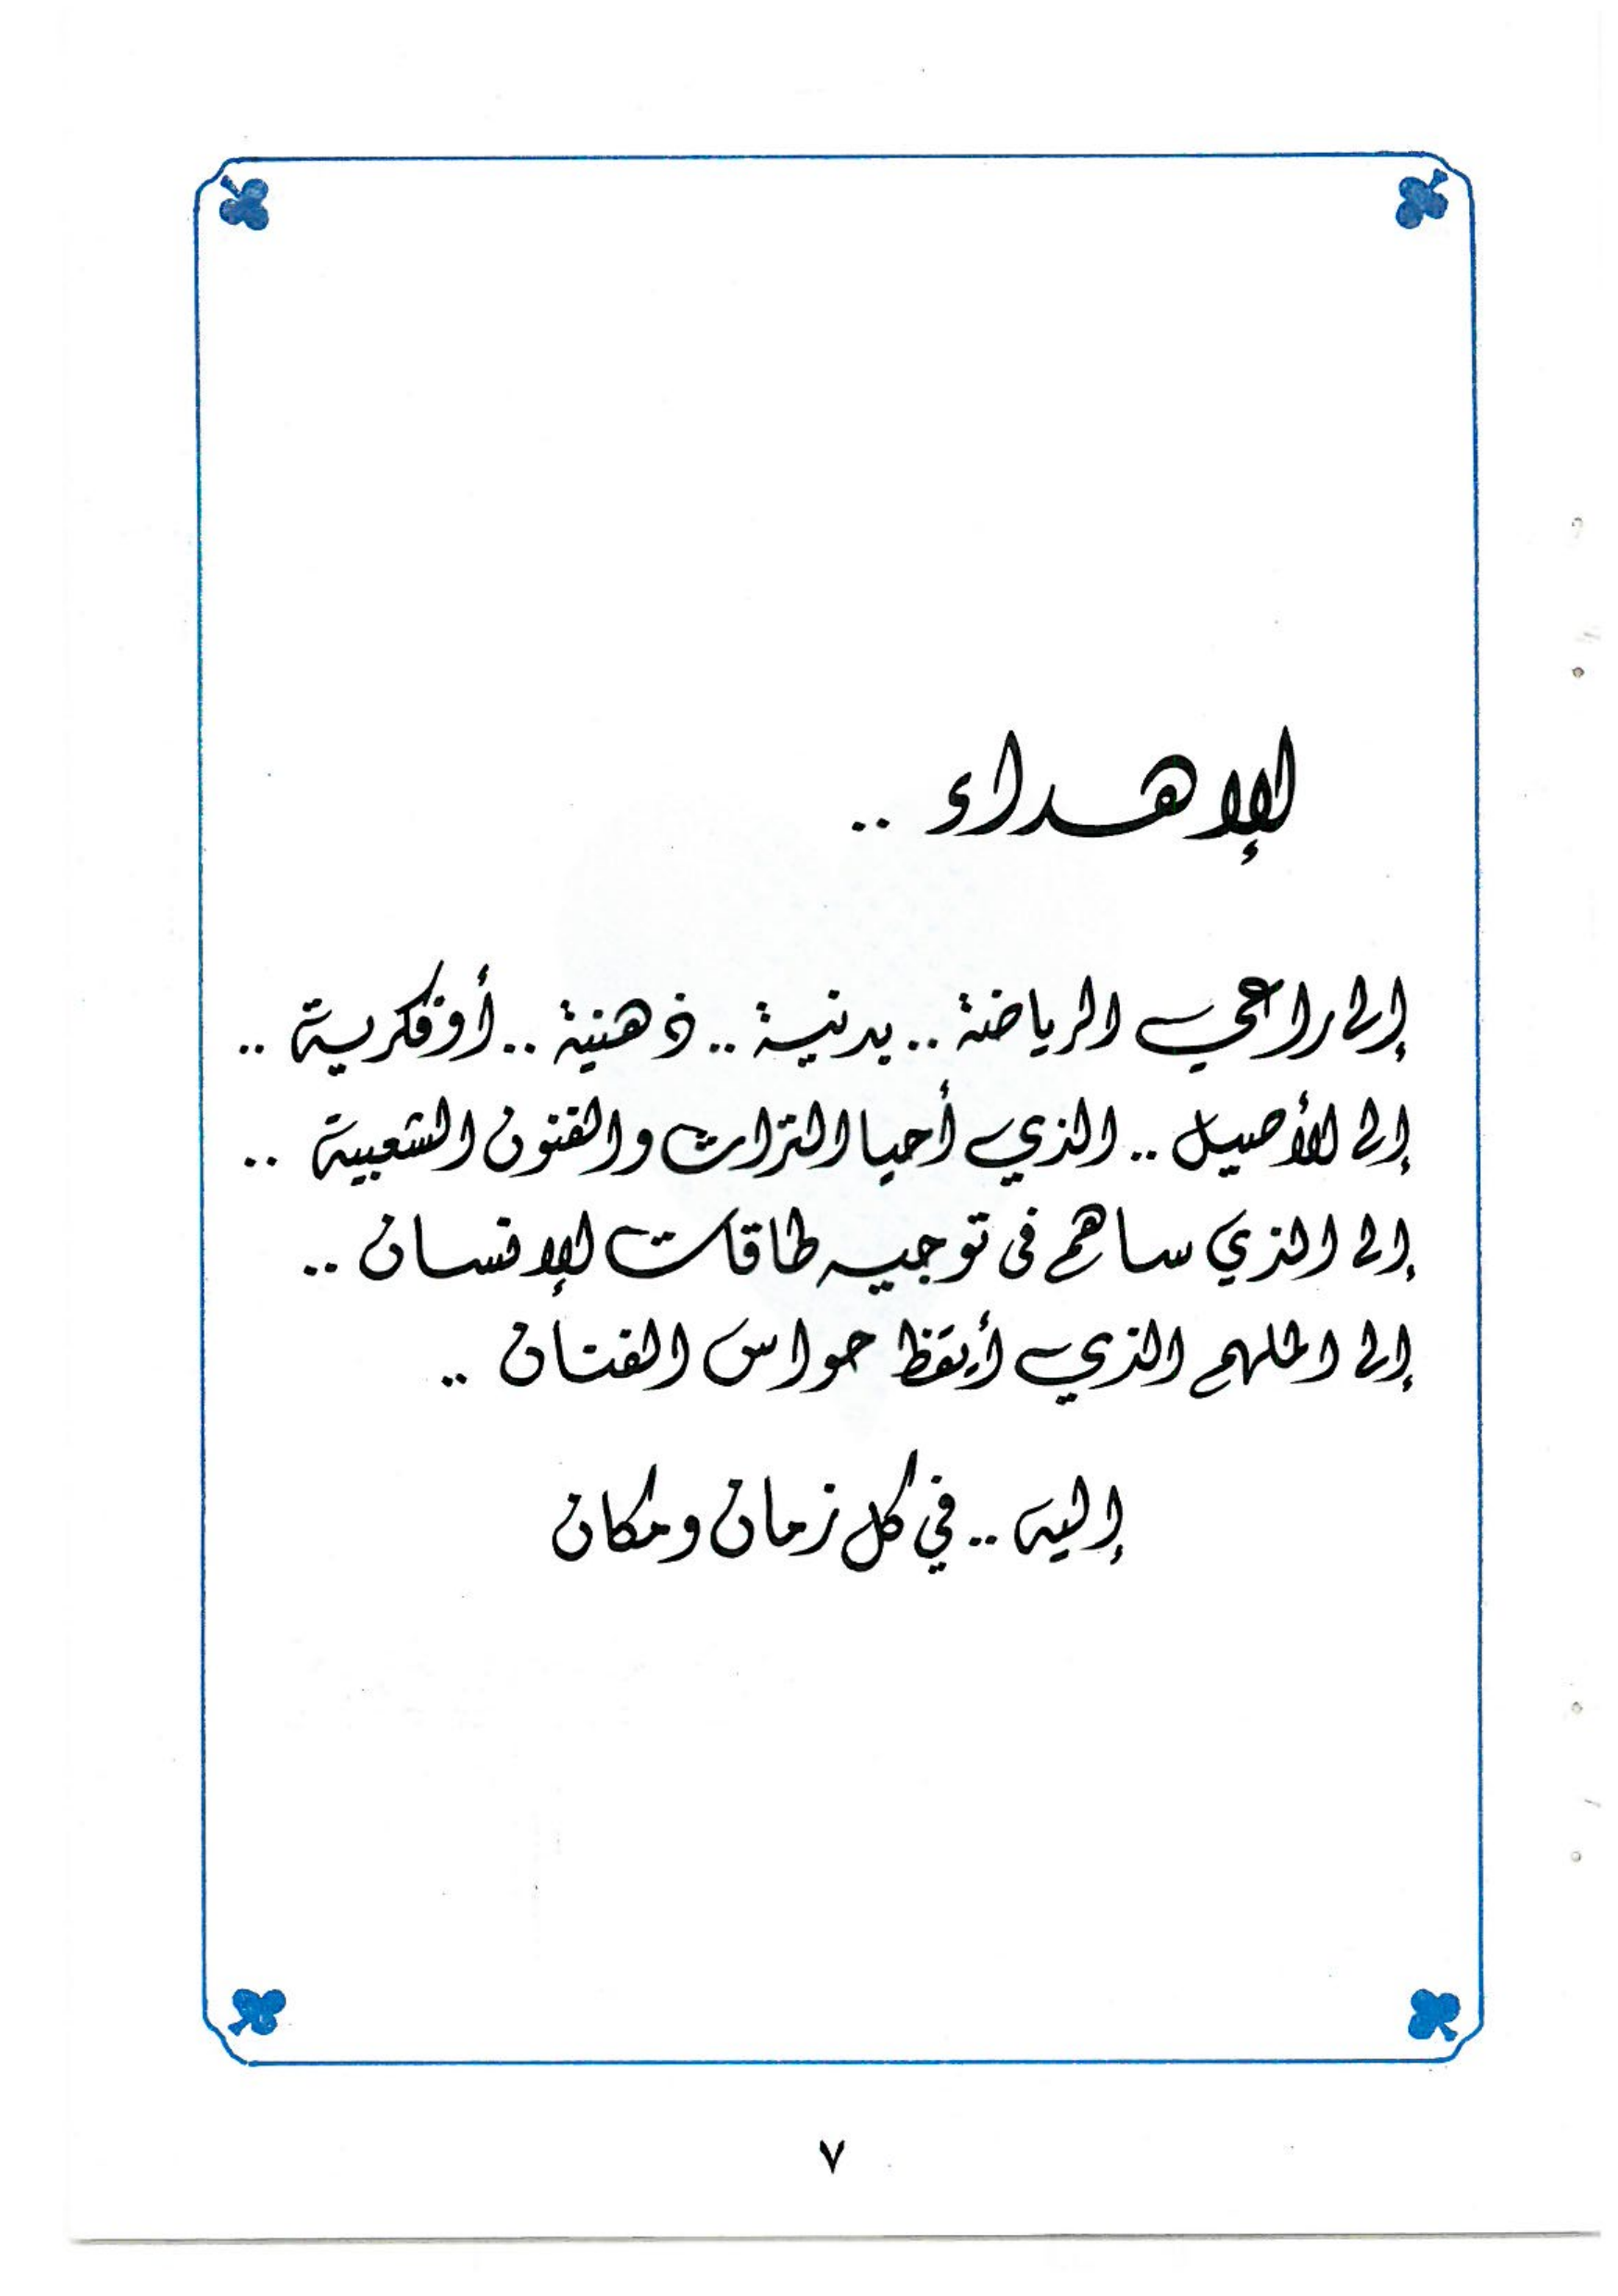 الإهداء ..
إلى راعي الرياضة .. بدنية .. ذهنية .. أو فكرية ..
إلى الأصيل .. الذي أحيا التراث والفنون الشعبية ..
إلى الذي ساهم في توجيه طاقات الإنسان ..
إلى الملهم الذي أيقظ حواس الفنان ..
إليه .. في كل زمان ومكان
٧